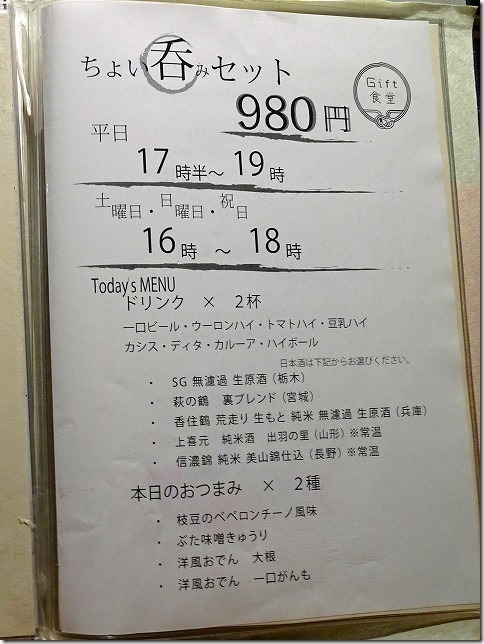 ちょい呑みセット
Gift
食堂
980円
平日
17時半～19時
土曜日・日曜日・祝日
16時 ～ 18時
Today's MENU
ドリンク × 2杯
一口ビール・ウーロンハイ・トマトハイ・豆乳ハイ
カシス・ディタ・カルーア・ハイボール
日本酒は下記からお選びください。
・ SG 無濾過 生原酒（栃木）
・ 萩の鶴 裏ブレンド（宮城）
・ 香住鶴 荒走り 生もと 純米 無濾過 生原酒（兵庫）
・ 上喜元 純米酒 出羽の里（山形）※常温
・ 信濃錦 純米 美山錦仕込（長野）※常温
本日のおつまみ × 2種
・ 枝豆のペペロンチーノ風味
・ ぶた味噌きゅうり
・ 洋風おでん 大根
・ 洋風おでん 一口がんも